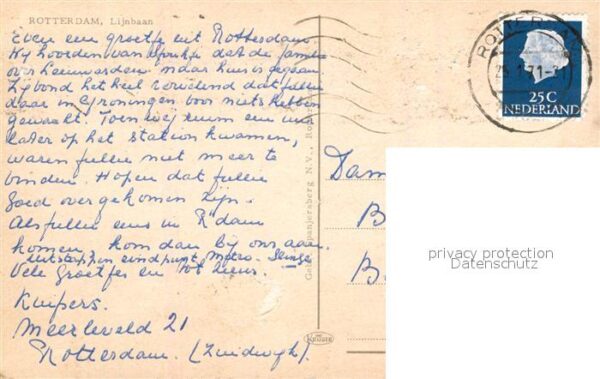 ROTTERDAM, Lijnbaan
Even een groetje uit Rotterdam
Wij hoorden van Sjoukje dat de familie
over Leeuwarden naar huis is gegaan.
Zij vond het heel vervelend dat jullie
daar in Groningen voor niets hebben
gewacht. Toen wij ruim een uur
later op het station kwamen,
waren jullie niet meer te
vinden. Hopen dat jullie
goed overgekomen zijn.
Als jullie eens in R'dam
komen, kom dan bij ons aan.
uitstappen eindpunt Metro - Slinge
Vele Groetjes en tot ziens.
Kuipers.
Meerleveld 21
Rotterdam. (Zuidwijk).
Spanjersberg N.V.,
KRUGER
ROTTERDAM
71
25C
NEDERLAND
Dam
B
B
privacy protection
Datenschutz